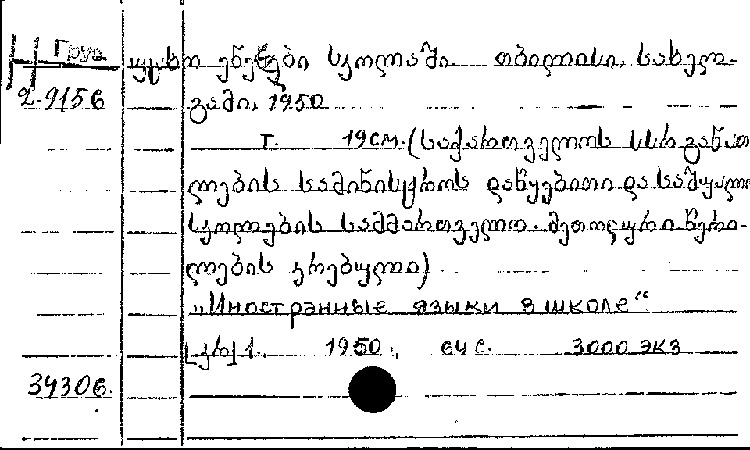 Груз
უცხო ენები სკოლაში. თბილისი, სახელ-
2-9156
გამი, 1950
т. 19 см. (საქართველოს სსრ განათ
ლების სამინისტროს დაწყებითი და საშუალო
სკოლების სამმართველო. მეთოდური წერი-
ლების კრებული)
„Иностранные языки в школе“.
[კრ] 1. 1950. 64 с. 3000 экз
3430б.